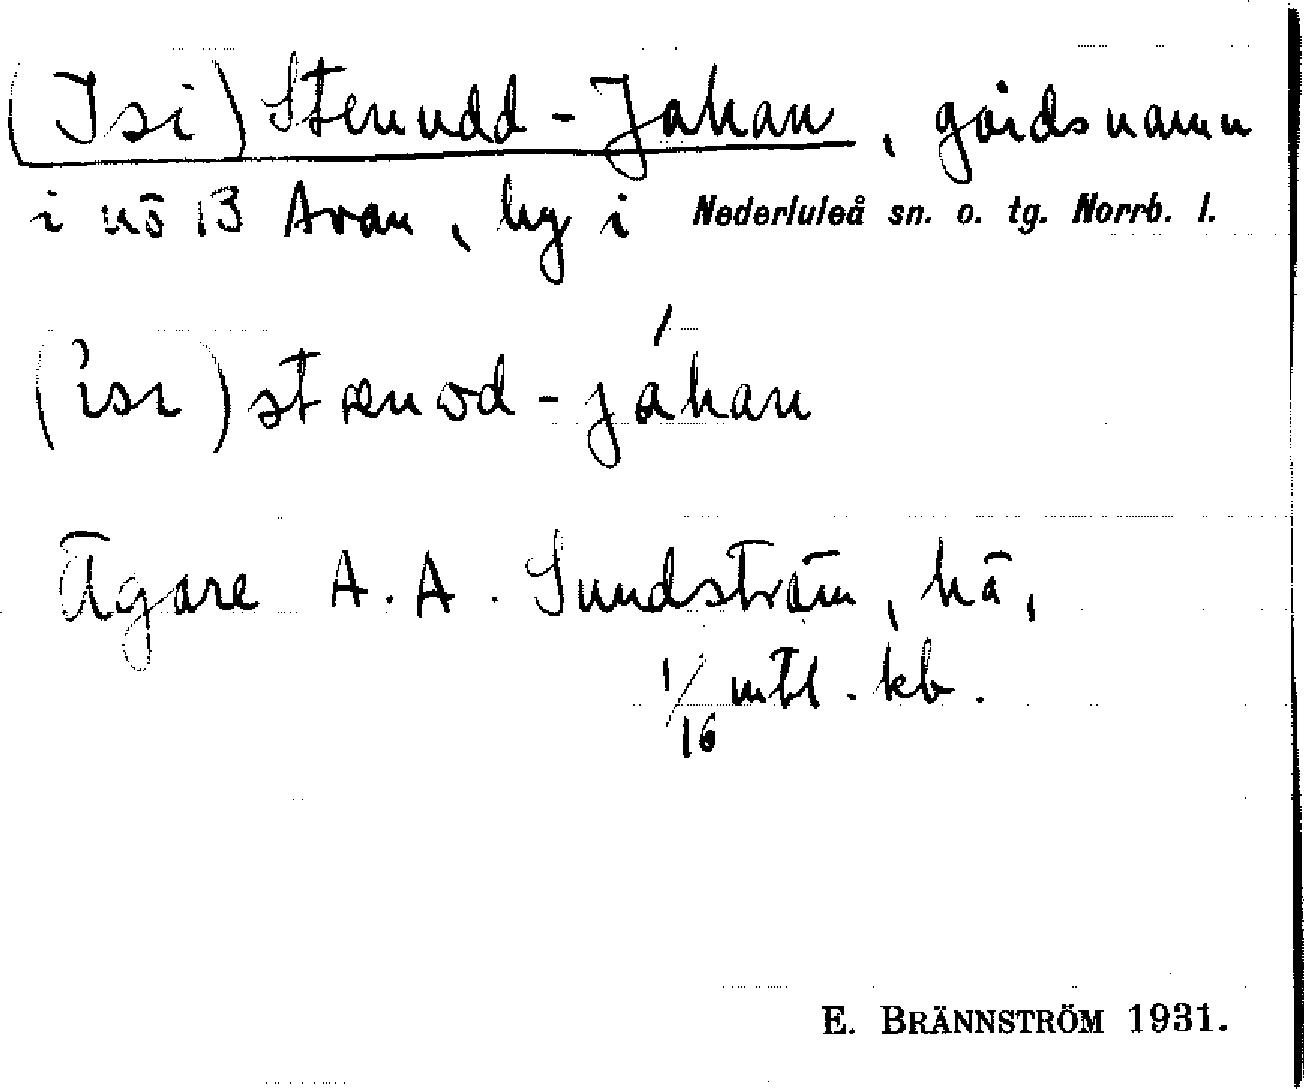 (Isi) Stenudd-Jahan, gårdsnamn
i nö 13 Avan, by i Nederluleå sn. o. tg. Norrb. l.
(ìsı) stænɷd-jáhan
Ägare A. A. Sundström, hä,
1/16 mtl. kb.
E. BRÄNNSTRÖM 1931.